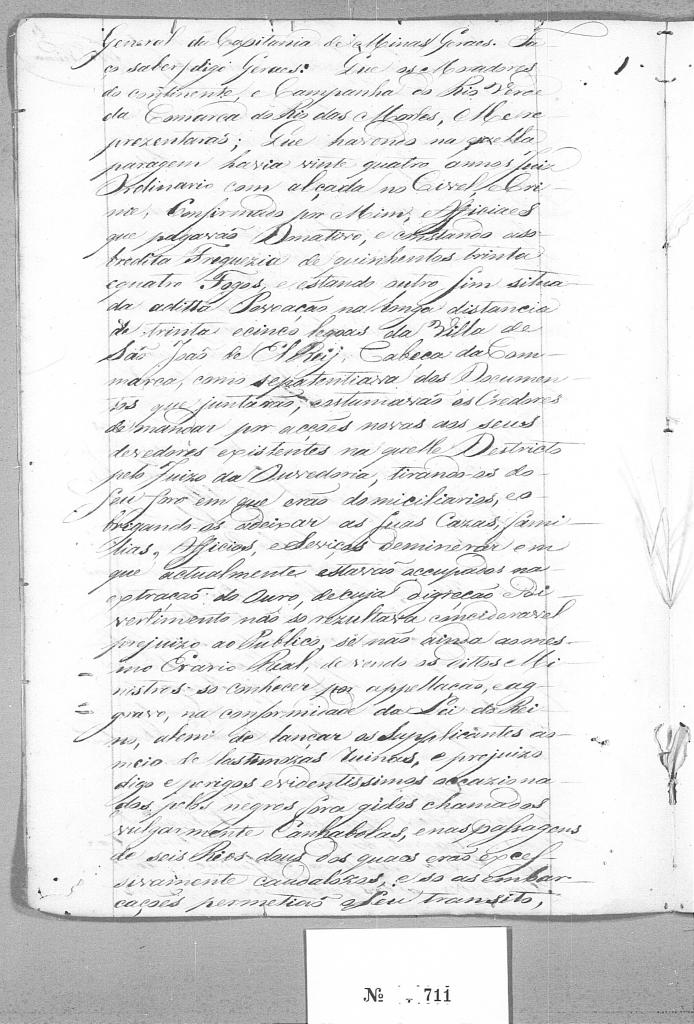 General da Capitania de Minas Geraes. Fa-
ço saber, digo Geraes: Que os Moradores
do continente, e Campanha do Rio Verde
da Comarca do Rio das Mortes, Me re-
prezentarão; Que havendo na quella
paragem havia vinte quatro annos Juiz
Ordinario com alçada no Civel, e Cri-
me, Confirmado por Mim, e Officiaes
que pagavão Donativo, e constando aso-
bredita Freguezia de quinhentos trinta
equatro Fogos, e estando outro sim situa-
da aditta Povoação na longa distancia
de trinta ecinco legoas da Villa de
São João de El Rey, Cabeca da Com-
marca, como sepatentiava dos Documen-
tos que juntarão, costumavão os Credores
demandar por acções novas aos seus
devedores existentes na quelle Destricto
pelo Juizo da Ouvedoria, tirando-os do
seu foro em que erão domiciliarios, eo-
brigando-os adeixar as suas Cazas, fami-
lias, Officios, e Serviços deminerar em
que actualmente estavão occupados na
extracção do Ouro, decuja digreção edi-
vertimento não so rezultava concideravel
prejuizo ao Publico, se não ainda aomes-
mo Erario Real, devendo os dittos Mi-
nistros so conhecer por appellação, eag-
gravo, na conformidade da Lei do Rei-
no, alem de lançar os Supplicantes ao
meio de lastimozas ruinas, e prejuizo
digo e perigos evidentissimos occaziona-
dos pelos negros fora gidos chamados
vulgarmente Canhabolas, enas passagens
de seis Rios dous dos quaes erão exces-
sivamente caudalozos, e so as embar-
cações permetião o seu transito,
1.
Nº 711